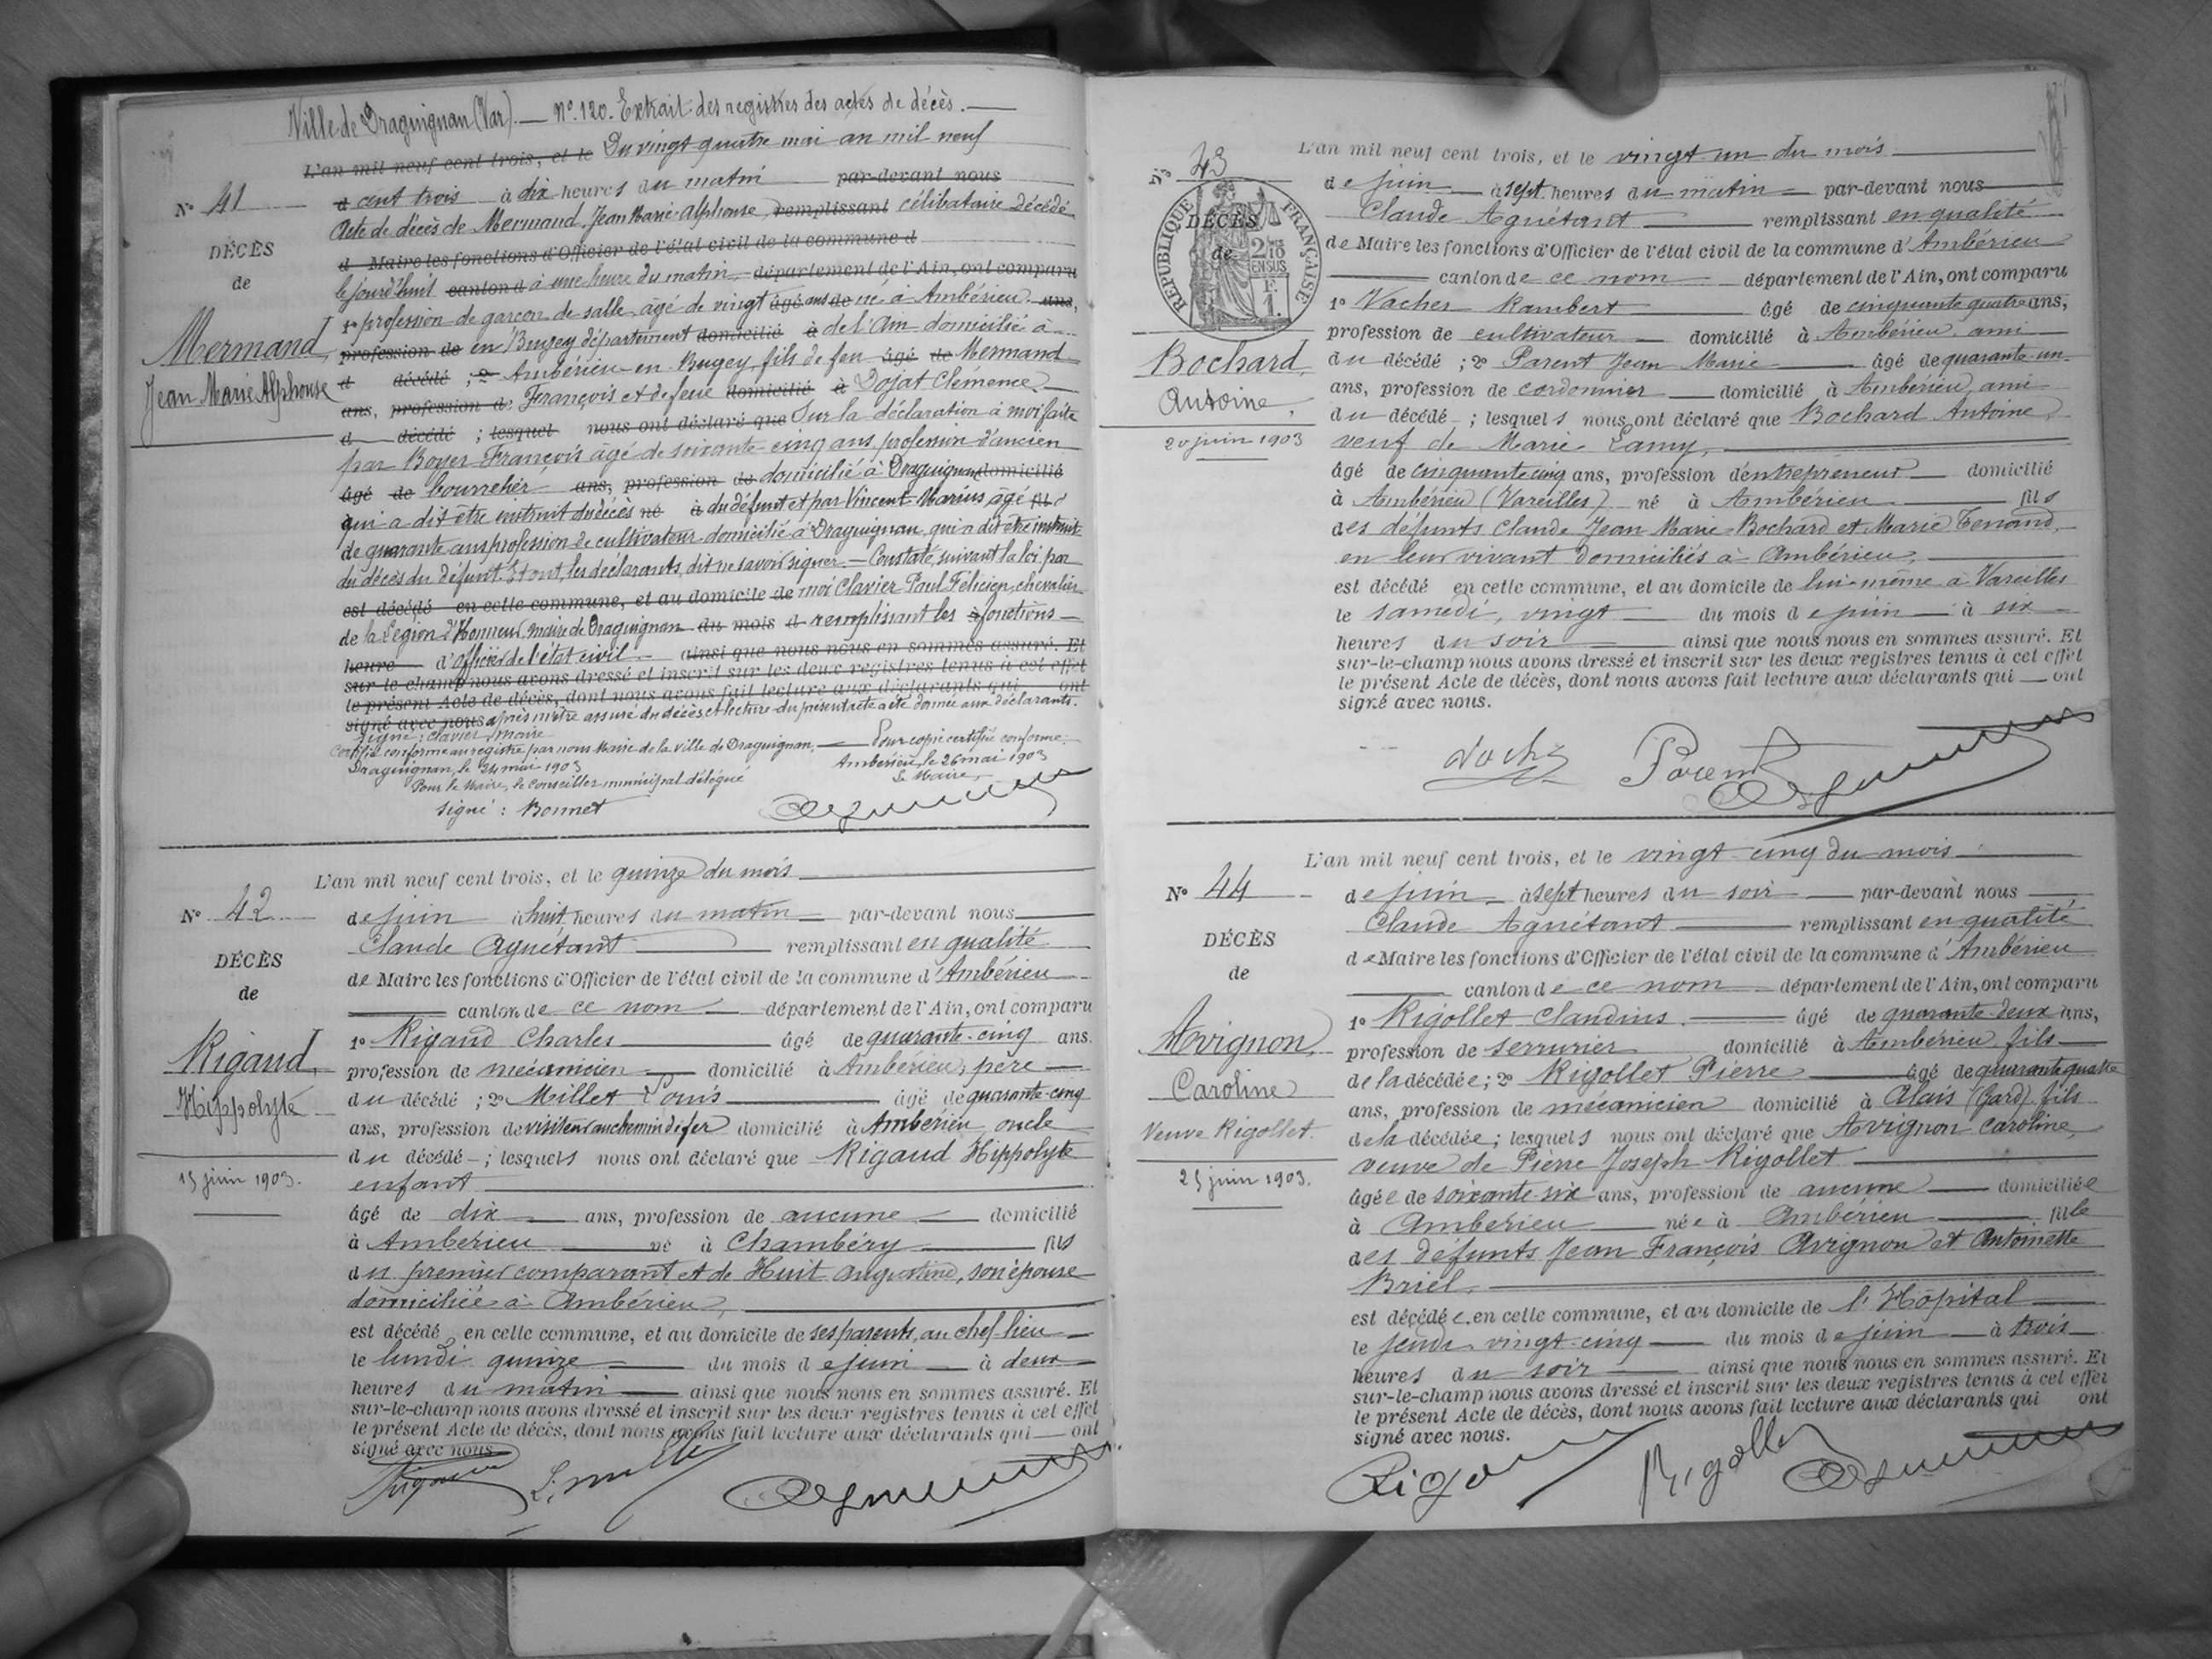 Ville de Draguignan (Var). — N° 120. Extrait des registres des actes de décès. —
L'an mil neuf cent trois, et le Du vingt quatre mai an mil neuf
N° 41
d cent trois à dix heures du matin par-devant nous
Acte de décès de Mermand, Jean Marie Alphonse, remplissant célibataire décédé
DÉCÈS
d Maire les fonctions d'Officier de l'état civil de la commune d
de
le jourd'huit canton d à une heure du matin département de l'Ain, ont comparu
1° profession de garçon de salle, âgé de vingt âgé ans de né à Ambérieu ans,
Mermand,
profession de en Bugey département domicilié à de l'Ain domicilié à
Jean Marie Alphonse
d décédé ; 2° Ambérieu-en-Bugey, fils de feu âgé de Mermand
ans, profession de François et de feue domicilié à Dojat Clémence.—
d décédé ; lesquel nous ont déclaré que Sur la déclaration à moi faite
par Boyer François âgé de soixante-cinq ans, profession d'ancien
âgé de bourrelier ans, profession de domicilié à Draguignan domicilié
qui a dit être instruit du décès né à du défunt et par Vincent Marius âgé fil
de quarante ans profession de cultivateur domicilié à Draguignan qui a dit être instruit
du décès du défunt. Et ont, les déclarants, dit ne savoir signer. — Constaté, suivant la loi par
est décédé en cette commune, et au domicile de moi Clavier Paul Félicien, chevalier
de la Légion d'Honneur, maire de Draguignan du mois d remplissant les à fonctions —
heure d'officier de l'état civil — ainsi que nous nous en sommes assuré. Et
sur-le-champ nous avons dressé et inscrit sur les deux registres tenus à cet effet
le présent Acte de décès, dont nous avons fait lecture aux déclarants qui ont
signé avec nous après m'être assuré du décès et lecture du présent acte a été donnée aux déclarants.
Signé : Clavier, Maire
Certifié conforme au registre par nous Maire de la ville de Draguignan. — Pour copie certifiée conforme:
Draguignan, le 24 mai 1903 Ambérieu, le 26 mai 1903
Pour le Maire, le conseiller municipal délégué Le Maire,
Signé : Bonnet
L'an mil neuf cent trois, et le quinze du mois
N° 42
de juin à huit heures du matin par-devant nous
Claude Agnétant remplissant en qualité
DÉCÈS
de Maire les fonctions d'Officier de l'état civil de la commune d'Ambérieu
de
canton de ce nom département de l'Ain, ont comparu
1° Rigaud Charles âgé de quarante-cinq ans.
Rigaud,
profession de mécanicien domicilié à Ambérieu, père
Hippolyte
du décédé ; 2° Millet Louis âgé de quarante-cinq
ans, profession de visiteur au chemin de fer domicilié à Ambérieu, oncle
du décédé ; lesquels nous ont déclaré que Rigaud Hippolyte
15 juin 1903.
enfant
âgé de dix ans, profession de aucune domicilié
à Ambérieu né à Chambéry fils
du premier comparant et de Huit Augustine, son épouse
domiciliée à Ambérieu,
est décédé en cette commune, et au domicile de ses parents, au chef-lieu
le lundi quinze du mois de juin à deux
heures du matin ainsi que nous nous en sommes assuré. Et
sur-le-champ nous avons dressé et inscrit sur les deux registres tenus à cet effet
le présent Acte de décès, dont nous avons fait lecture aux déclarants qui ont
signé avec nous
L'an mil neuf cent trois, et le vingt-un du mois
N° 43
de juin à sept heures du matin par-devant nous
Claude Agnétant remplissant en qualité
RÉPUBLIQUE FRANÇAISE
DÉCÈS
de
2/10 EN SUS
F.
1.
de Maire les fonctions d'Officier de l'état civil de la commune d'Ambérieu
canton de ce nom département de l'Ain, ont comparu
1° Vacher Rambert âgé de cinquante quatre ans,
profession de cultivateur domicilié à Ambérieu, ami
Bochard,
du décédé ; 2° Parent Jean Marie âgé de quarante-un
Antoine,
ans, profession de cordonnier domicilié à Ambérieu, ami
du décédé ; lesquels nous ont déclaré que Bochard Antoine
20 juin 1903
veuf de Marie Lamy,
âgé de cinquante cinq ans, profession d'entrepreneur domicilié
à Ambérieu (Vareilles) né à Ambérieu fils
des défunts Claude Jean Marie Bochard et Marie Tenand,
en leur vivant domiciliés à Ambérieu,
est décédé en cette commune, et au domicile de lui-même à Vareilles
le samedi, vingt du mois de juin à six
heures du soir ainsi que nous nous en sommes assuré. Et
sur-le-champ nous avons dressé et inscrit sur les deux registres tenus à cet effet
le présent Acte de décès, dont nous avons fait lecture aux déclarants qui ont
signé avec nous.
Parent
L'an mil neuf cent trois, et le vingt-cinq du mois
N° 44
de juin à sept heures du soir par-devant nous
Claude Agnétant remplissant en qualité
DÉCÈS
de Maire les fonctions d'Officier de l'état civil de la commune d'Ambérieu
de
canton de ce nom département de l'Ain, ont comparu
1° Rigollet Claudius âgé de quarante-deux ans,
Avignon,
profession de serrurier domicilié à Ambérieu, fils
Caroline
de la décédée ; 2° Rigollet Pierre âgé de quarante quatre
ans, profession de mécanicien domicilié à Alais (Gard), fils
Veuve Rigollet.
de la décédée ; lesquels nous ont déclaré que Avignon Caroline,
veuve de Pierre Joseph Rigollet
25 juin 1903.
âgée de soixante-six ans, profession de aucune domiciliée
à Ambérieu née à Ambérieu fille
des défunts Jean François Avignon et Antoinette
Briel,
est décédée en cette commune, et au domicile de l'Hôpital
le jeudi vingt-cinq du mois de juin à trois
heures du soir ainsi que nous nous en sommes assuré. Et
sur-le-champ nous avons dressé et inscrit sur les deux registres tenus à cet effet
le présent Acte de décès, dont nous avons fait lecture aux déclarants qui ont
signé avec nous.
Rigollet